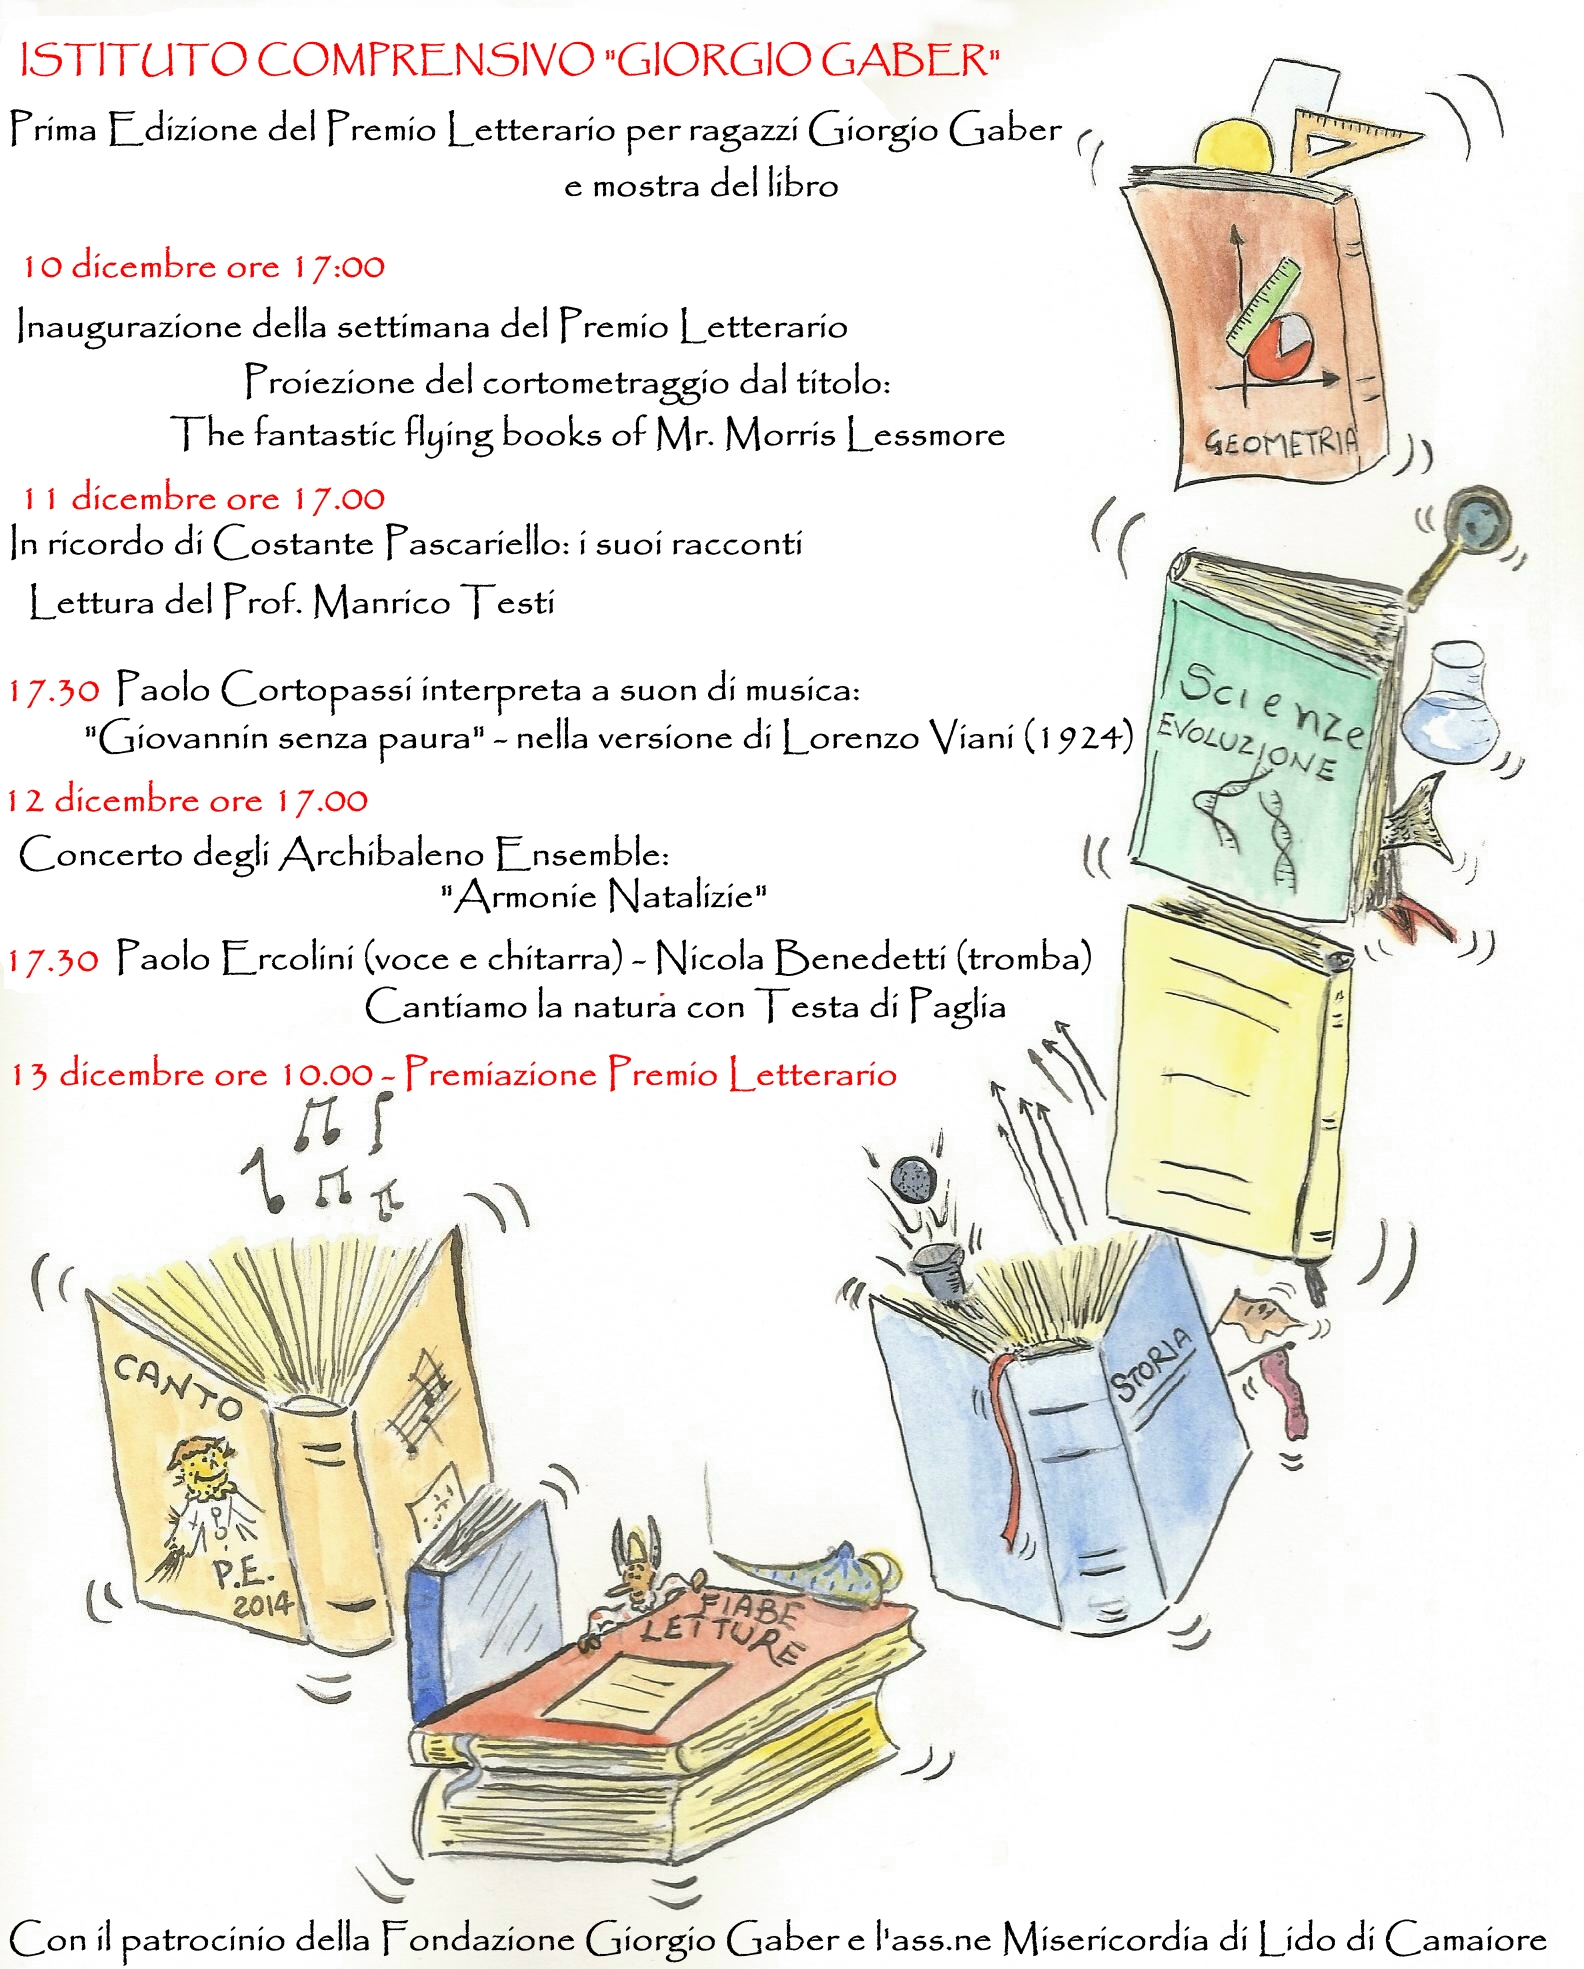 ISTITUTO COMPRENSIVO "GIORGIO GABER"
Prima Edizione del Premio Letterario per ragazzi Giorgio Gaber
e mostra del libro
10 dicembre ore 17:00
Inaugurazione della settimana del Premio Letterario
Proiezione del cortometraggio dal titolo:
The fantastic flying books of Mr. Morris Lessmore
GEOMETRIA
11 dicembre ore 17.00
In ricordo di Costante Pascariello: i suoi racconti
Lettura del Prof. Manrico Testi
17.30 Paolo Cortopassi interpreta a suon di musica:
"Giovannin senza paura" - nella versione di Lorenzo Viani (1924)
Scienze
EVOLUZIONE
12 dicembre ore 17.00
Concerto degli Archibaleno Ensemble:
"Armonie Natalizie"
17.30 Paolo Ercolini (voce e chitarra) - Nicola Benedetti (tromba)
Cantiamo la natura con Testa di Paglia
13 dicembre ore 10.00 - Premiazione Premio Letterario
CANTO
P.E.
2014
STORIA
FIABE
LETTURE
Con il patrocinio della Fondazione Giorgio Gaber e l'ass.ne Misericordia di Lido di Camaiore